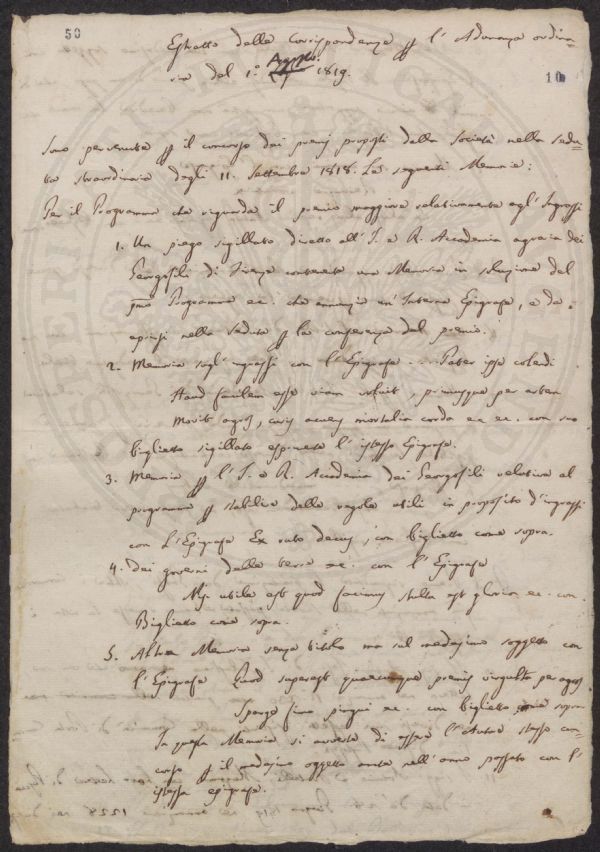 50
Estratto della Corrispondenza p l'Adunanza ordina-
ria del 1.° Agosto 1819.
10
Sono pervenute p il concorso dei premj proposti dalla Società nella sedu-
ta straordinaria degli 11. Settembre 1818. Le seguenti Memorie:
Per il Programma che riguarda il premio maggiore relativamente agl'Ingrassi
1. Un piego sigillato diretto all'I. e R. Accademia agraria dei
Georgofili di Firenze contenente una Memoria in soluzione del
pmo Programma ec. che annunzia un'Interna Epigrafe, e da
aprirsi nella seduta p la conferenza del premio.
2. Memoria sugl'ingrassi con l'Epigrafe ... Pater ipse colendi
Haud facilem esse viam voluit, primusque per artem
Movit agros, curis acuens mortalia corda ec ec. con suo
biglietto sigillato esprimente l'istessa Epigrafe.
3. Memoria p l'I. e R. Accademia dei Georgofili relativa al
programma p stabilire delle regole utili in proposito d'ingrassi
con L'Epigrafe Ex rure decus, con biglietto come sopra.
4. Dei governi delle terre ec. con l'Epigrafe
Nisi utile est quod facimus stulta est gloria ec. con
Biglietto come sopra.
5. Altra Memoria senza titolo ma sul medesimo soggetto con
l'Epigrafe Quod superest quaecunque premes virgulta per agros
Sparge fimo pingui ec. con biglietto come sopra
In questa Memoria si avverte di essere l'Autore stesso con-
corso p il medesimo oggetto anche nell'anno passato con l'
istessa epigrafe.